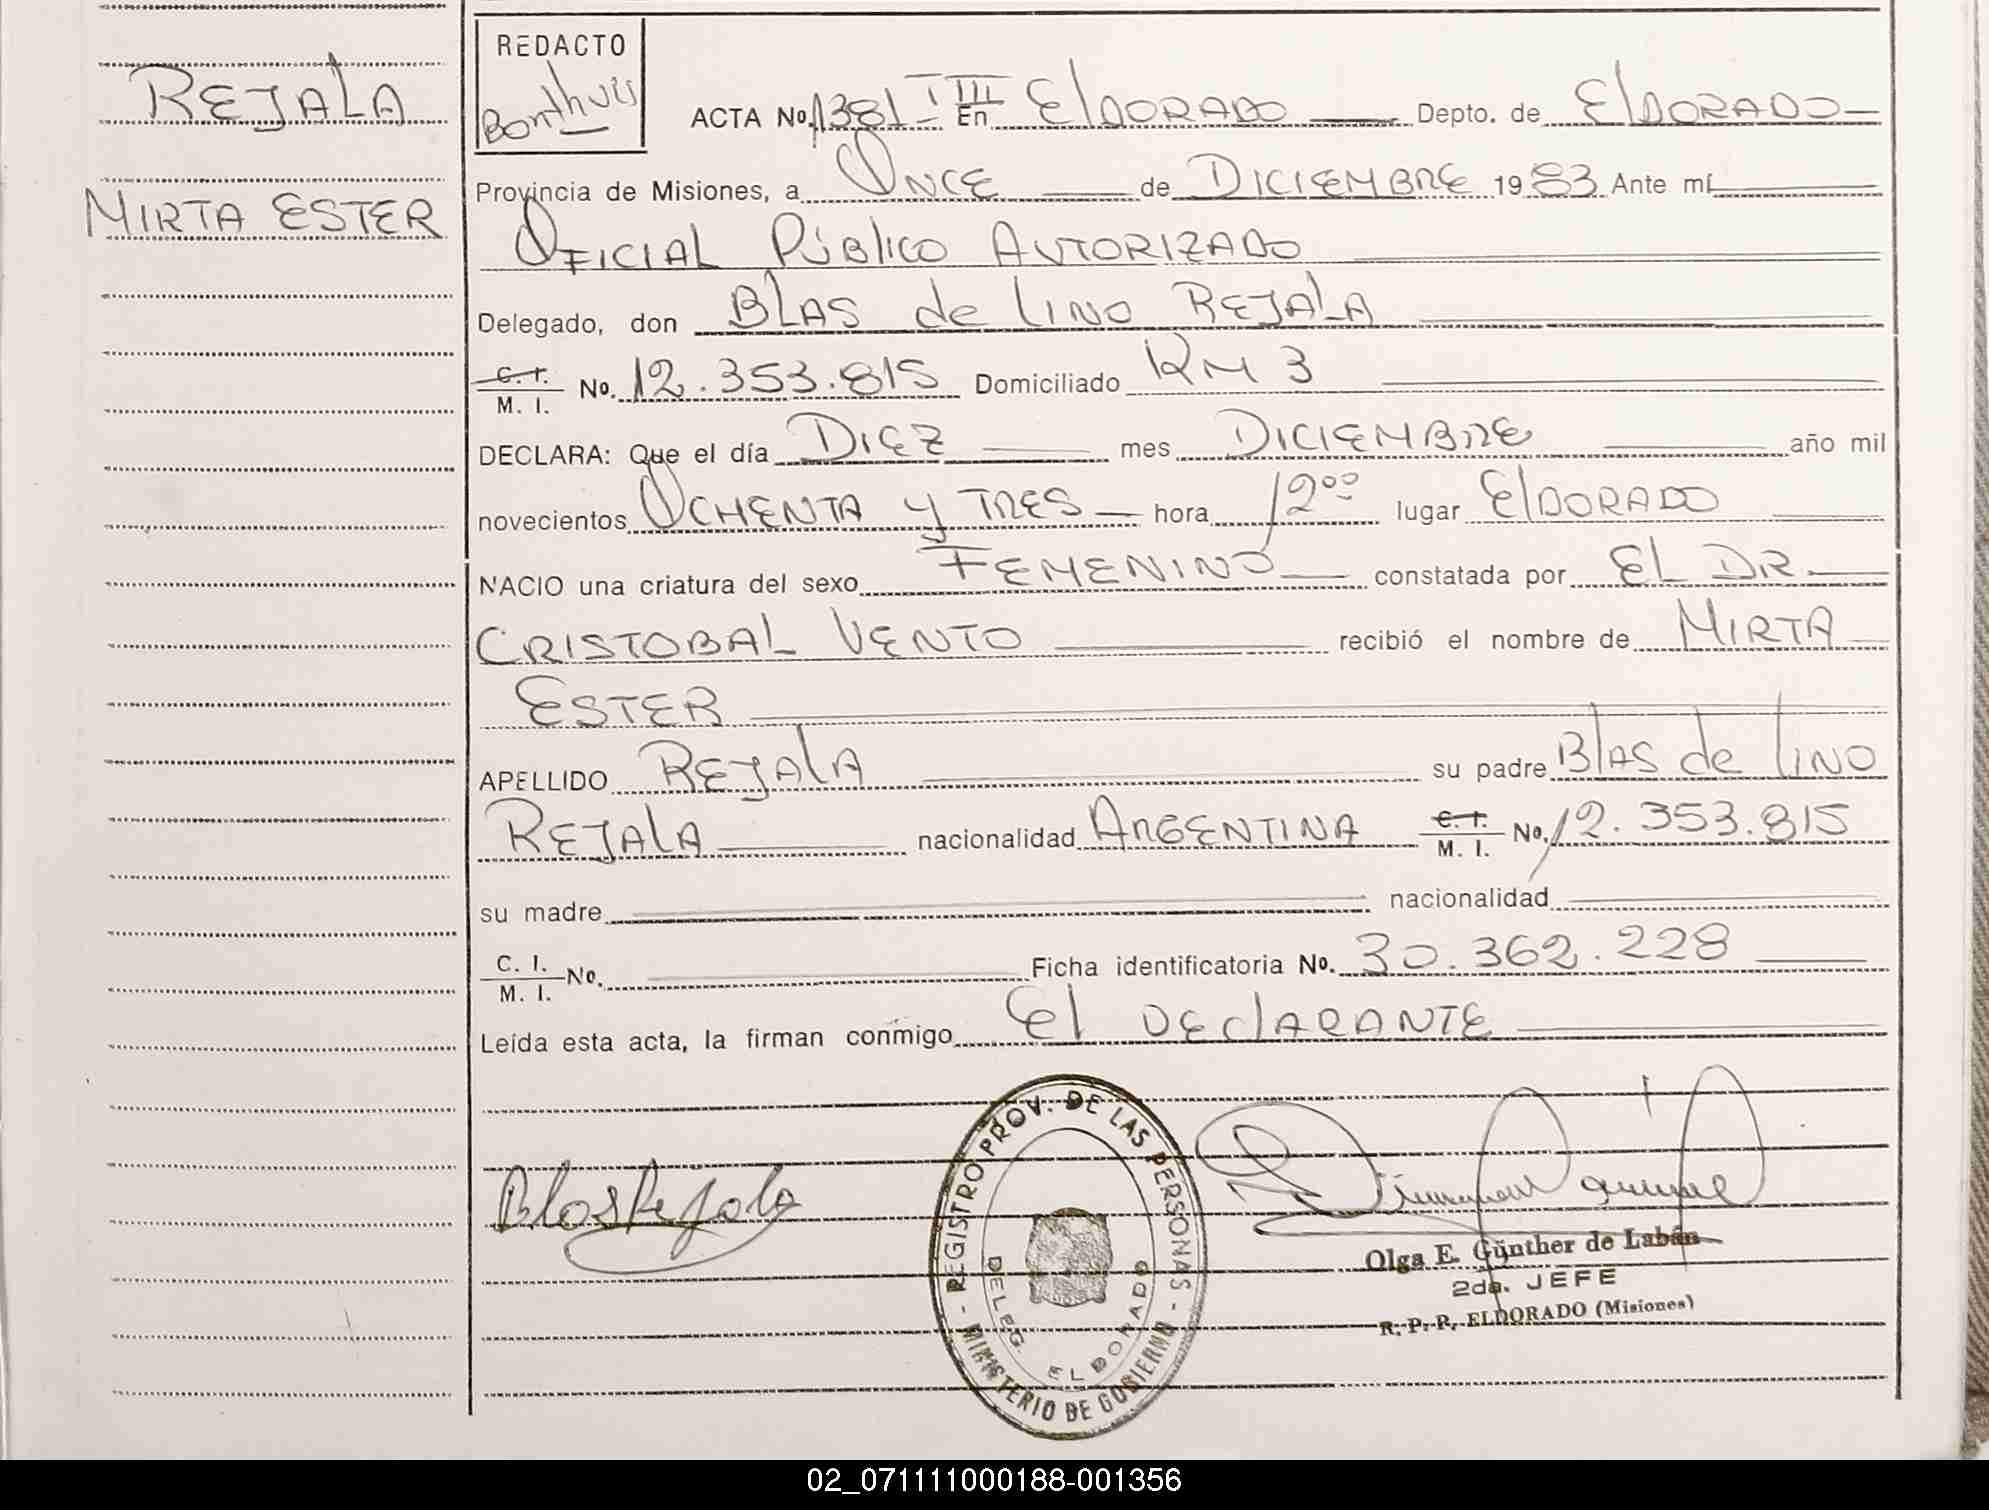 REJALA
MIRTA ESTER
REDACTO
Bonthuis
ACTA No. 1381 T III En ElDORADO Depto. de ElDORADO
Provincia de Misiones, a ONCE de DICIEMBRE 1983 Ante mí
OFICIAL PÚBlICO AUTORIZADO
Delegado, don BLAS de lINO REJALA
C. I. M. I. No. 12.353.815 Domiciliado KM 3
DECLARA: Que el día DIEZ mes DICIEMBRE año mil
novecientos OCHENTA y TRES hora 12°° lugar ElDORADO
NACIO una criatura del sexo FEMENINO constatada por EL DR.
CRISTOBAL VENTO recibió el nombre de MIRTA
ESTER
APELLIDO REJALA su padre BlAS de lINO
REJALA nacionalidad ARGENTINA C. I. M. I. No. 12.353.815
su madre nacionalidad
C. I. M. I. No. Ficha identificatoria No. 30.362.228
Leída esta acta, la firman conmigo El DEClARANTE
Blas Rejala
- REGISTRO PROV. DE LAS PERSONAS -
MINISTERIO DE GOBIERNO
DELEG. ELDORADO
Olga E. Günther de Labán
2da. JEFE
R. P. P. ELDORADO (Misiones)
02_071111000188-001356